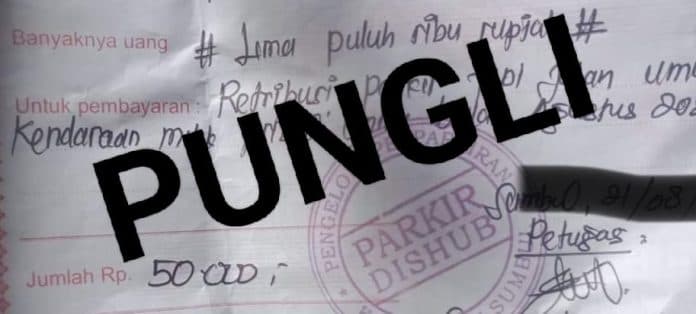 Banyaknya uang # Lima puluh ribu rupiah #
Untuk pembayaran : Retribusi Parkir Jalan umum
Kendaraan Agustus 202
PUNGLI
PENGELOLA PERPARKIRAN
PARKIR
DISHUB
SUM
21/08/
Petugas :
Jumlah Rp. 50.000,-